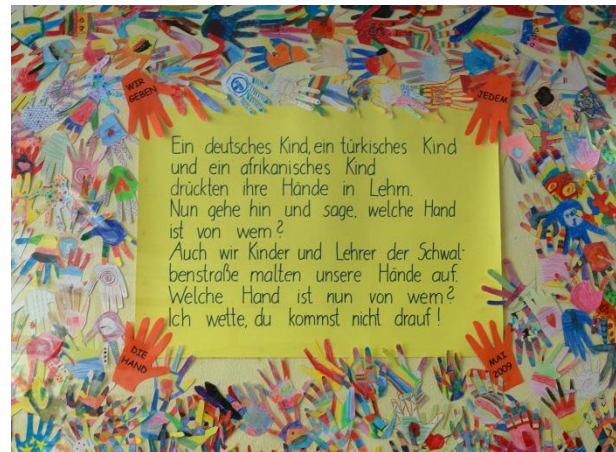 WIR
GEBEN
JEDEM
Ein deutsches Kind, ein türkisches Kind
und ein afrikanisches Kind
drückten ihre Hände in Lehm.
Nun gehe hin und sage, welche Hand
ist von wem?
Auch wir Kinder und Lehrer der Schwal-
benstraße malten unsere Hände auf.
Welche Hand ist nun von wem?
Ich wette, du kommst nicht drauf!
DIE
HAND
MAI
2009